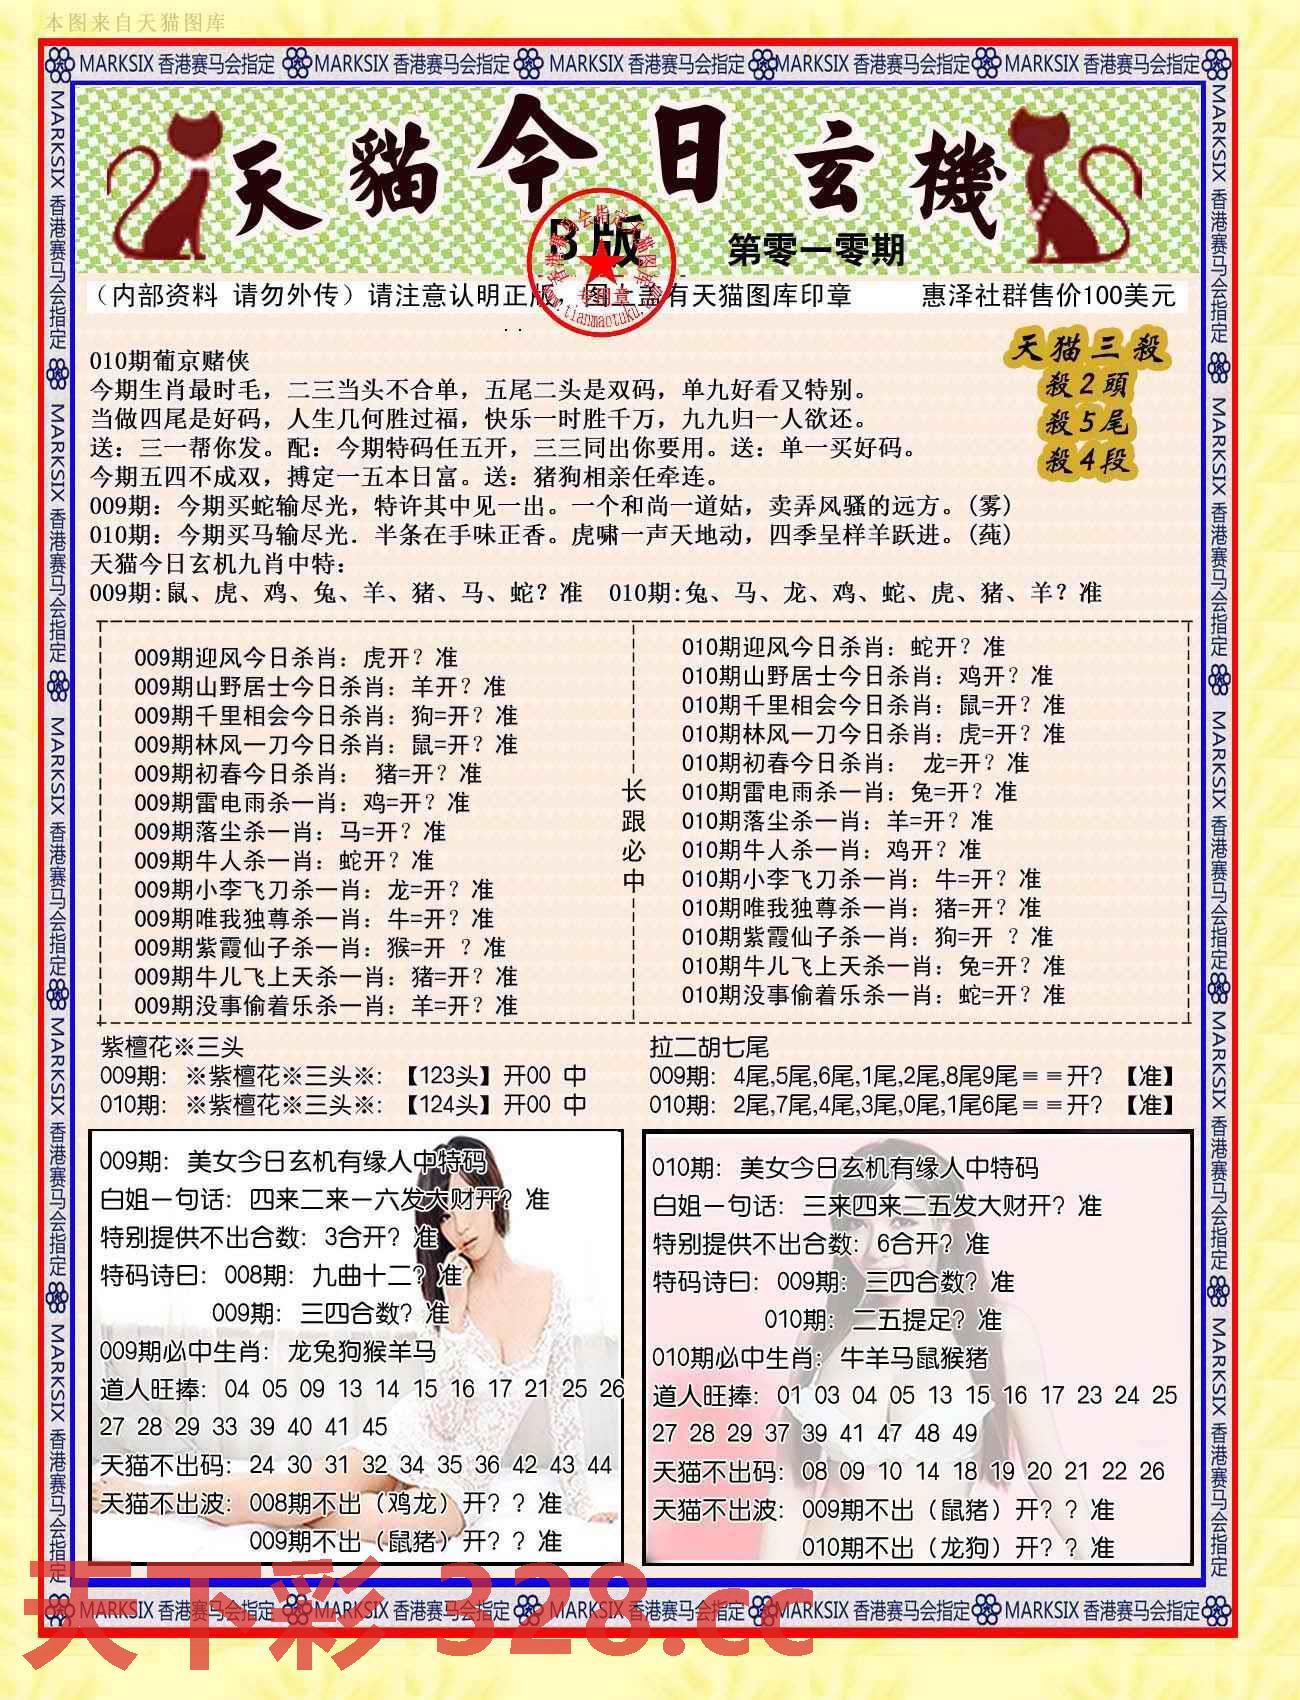 本图来自天猫图库
MARKSIX 香港赛马会指定 MARKSIX 香港赛马会指定 MARKSIX 香港赛马会指定 MARKSIX 香港赛马会指定 MARKSIX 香港赛马会指定
天貓今日玄機
B版
第零一零期
（内部资料 请勿外传）请注意认明正版，图上盖有天猫图库印章
惠泽社群售价100美元
专用章
www.tianmaotuku.com
天猫三殺
殺2頭
殺5尾
殺4段
010期葡京赌侠
今期生肖最时毛，二三当头不合单，五尾二头是双码，单九好看又特别。
当做四尾是好码，人生几何胜过福，快乐一时胜千万，九九归一人欲还。
送：三一帮你发。配：今期特码任五开，三三同出你要用。送：单一买好码。
今期五四不成双，搏定一五本日富。送：猪狗相亲任牵连。
009期：今期买蛇输尽光，特许其中见一出。一个和尚一道姑，卖弄风骚的远方。(雾)
010期：今期买马输尽光．半条在手味正香。虎啸一声天地动，四季呈样羊跃进。(莼)
天猫今日玄机九肖中特：
009期:鼠、虎、鸡、兔、羊、猪、马、蛇？准 010期:兔、马、龙、鸡、蛇、虎、猪、羊？准
009期迎风今日杀肖：虎开？准
009期山野居士今日杀肖：羊开？准
009期千里相会今日杀肖：狗=开？准
009期林风一刀今日杀肖：鼠=开？准
009期初春今日杀肖： 猪=开？准
009期雷电雨杀一肖：鸡=开？准
009期落尘杀一肖：马=开？准
009期牛人杀一肖：蛇开？准
009期小李飞刀杀一肖：龙=开？准
009期唯我独尊杀一肖：牛=开？准
009期紫霞仙子杀一肖：猴=开 ？准
009期牛儿飞上天杀一肖：猪=开？准
009期没事偷着乐杀一肖：羊=开？准
长跟必中
010期迎风今日杀肖：蛇开？准
010期山野居士今日杀肖：鸡开？准
010期千里相会今日杀肖：鼠=开？准
010期林风一刀今日杀肖：虎=开？准
010期初春今日杀肖： 龙=开？准
010期雷电雨杀一肖：兔=开？准
010期落尘杀一肖：羊=开？准
010期牛人杀一肖：鸡开？准
010期小李飞刀杀一肖：牛=开？准
010期唯我独尊杀一肖：猪=开？准
010期紫霞仙子杀一肖：狗=开 ？准
010期牛儿飞上天杀一肖：兔=开？准
010期没事偷着乐杀一肖：蛇=开？准
紫檀花※三头
009期：※紫檀花※三头※：【123头】开00 中
010期：※紫檀花※三头※：【124头】开00 中
拉二胡七尾
009期：4尾,5尾,6尾,1尾,2尾,8尾9尾＝＝开？【准】
010期：2尾,7尾,4尾,3尾,0尾,1尾6尾＝＝开？【准】
009期：美女今日玄机有缘人中特码
白姐一句话：四来二来一六发大财开？准
特别提供不出合数：3合开？准
特码诗曰：008期：九曲十二？准
009期：三四合数？准
009期必中生肖：龙兔狗猴羊马
道人旺捧：04 05 09 13 14 15 16 17 21 25 26
27 28 29 33 39 40 41 45
天猫不出码：24 30 31 32 34 35 36 42 43 44
天猫不出波：008期不出（鸡龙）开？？准
009期不出（鼠猪）开？？准
010期：美女今日玄机有缘人中特码
白姐一句话：三来四来二五发大财开？准
特别提供不出合数：6合开？准
特码诗曰：009期：三四合数？准
010期：二五提足？准
010期必中生肖：牛羊马鼠猴猪
道人旺捧：01 03 04 05 13 15 16 17 23 24 25
27 28 29 37 39 41 47 48 49
天猫不出码：08 09 10 14 18 19 20 21 22 26
天猫不出波：009期不出（鼠猪）开？？准
010期不出（龙狗）开？？准
MARKSIX 香港赛马会指定 MARKSIX 香港赛马会指定 MARKSIX 香港赛马会指定 MARKSIX 香港赛马会指定 MARKSIX 香港赛马会指定
MARKSIX 香港赛马会指定 MARKSIX 香港赛马会指定 MARKSIX 香港赛马会指定 MARKSIX 香港赛马会指定 MARKSIX 香港赛马会指定
MARKSIX 香港赛马会指定 MARKSIX 香港赛马会指定 MARKSIX 香港赛马会指定 MARKSIX 香港赛马会指定 MARKSIX 香港赛马会指定
天下彩 328.cc